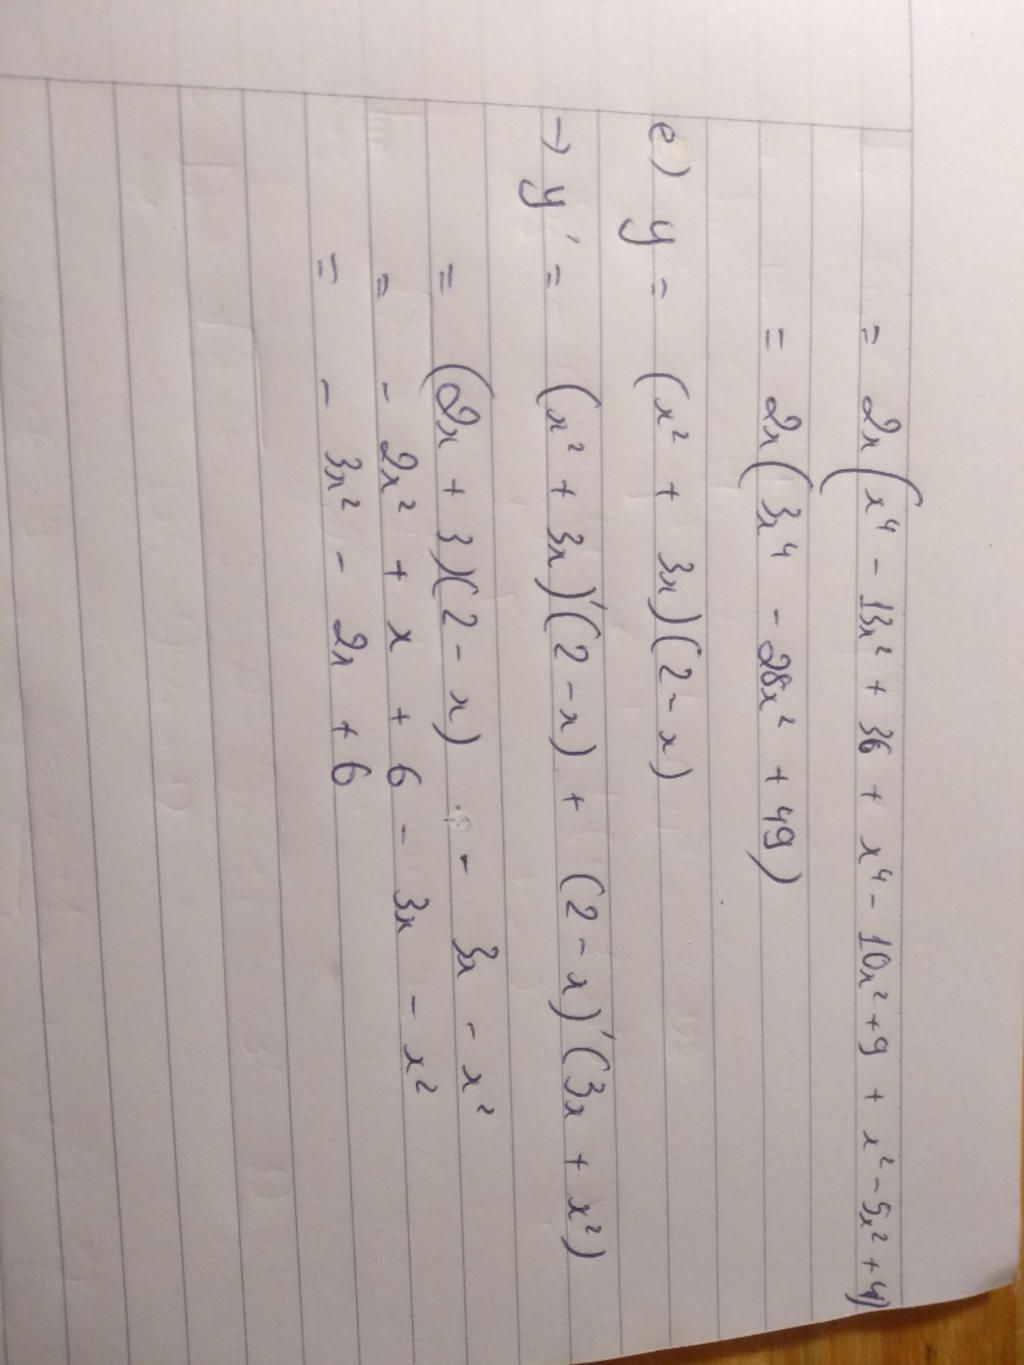 = 2x(x⁴ - 13x² + 36 + x⁴ - 10x² + 9 + x² - 5x² + 4)
= 2x(3x⁴ - 28x² + 49)
e) y = (x² + 3x)(2 - x)
→ y' = (x² + 3x)'(2 - x) + (2 - x)'(3x + x²)
= (2x + 3)(2 - x) - 3x - x²
= - 2x² + x + 6 - 3x - x²
= - 3x² - 2x + 6